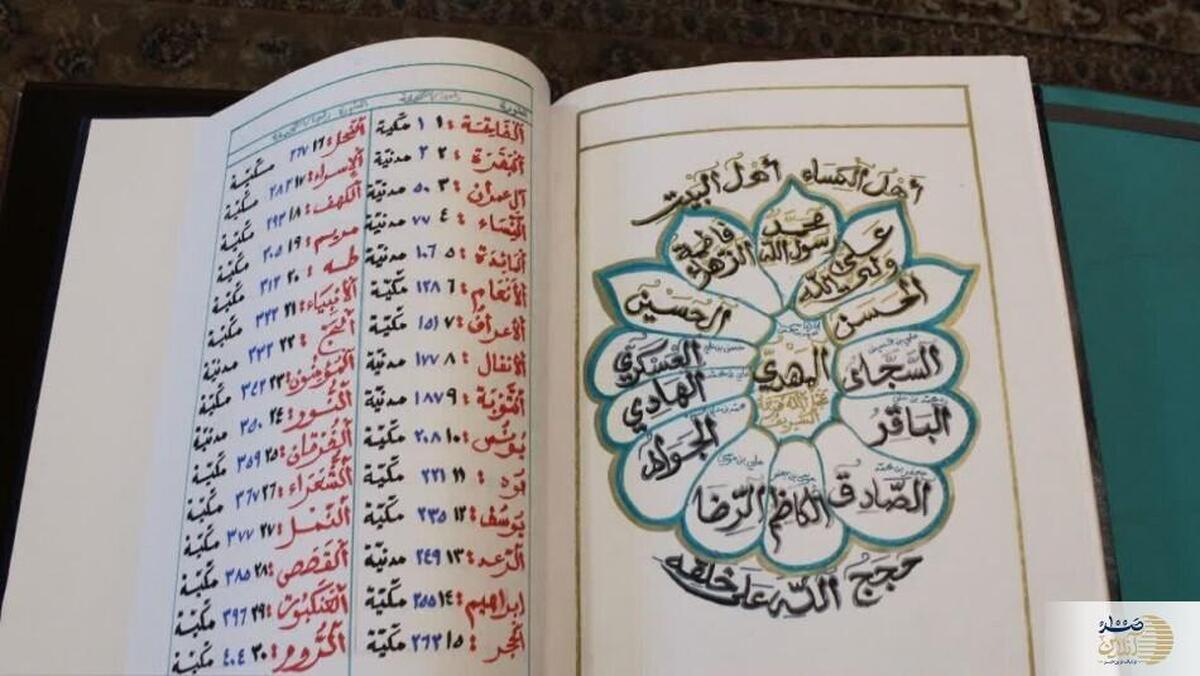 أهل الكساء أهل البيت
محمد رسول الله
علي ولي الله
فاطمة الزهراء
الحسن
الحسين
السجاد
الباقر
الصادق
الكاظم
الرضا
الجواد
الهادي
العسكري
المهدي
حجج الله على خلقه
السورة
الفاتحة: ١ ١ مكية
البقرة: ٢ ٢ مدنية
آل عمران: ٣ ٥٠ مدنية
النساء: ٤ ٧٧ مدنية
المائدة: ٥ ١٠٦ مدنية
الأنعام: ٦ ١٢٨ مكية
الأعراف: ٧ ١٥١ مكية
الأنفال: ٨ ١٧٧ مدنية
التوبة: ٩ ١٨٧ مدنية
يونس: ١٠ ٢٠٨ مكية
هود: ١١ ٢٢١ مكية
يوسف: ١٢ ٢٣٥ مكية
الرعد: ١٣ ٢٤٩ مدنية
إبراهيم: ١٤ ٢٥٥ مكية
الحجر: ١٥ ٢٦٢ مكية
السورة
النحل: ١٦ ٢٦٧ مكية
الإسراء: ١٧ ٢٨٢ مكية
الكهف: ١٨ ٢٩٣ مكية
مريم: ١٩ ٣٠٥ مكية
طه: ٢٠ ٣١٢ مكية
الأنبياء: ٢١ ٣٢٢ مكية
الحج: ٢٢ ٣٣٢ مدنية
المؤمنون: ٢٣ ٣٤٢ مكية
النور: ٢٤ ٣٥٠ مدنية
الفرقان: ٢٥ ٣٥٩ مكية
الشعراء: ٢٦ ٣٦٧ مكية
النمل: ٢٧ ٣٧٧ مكية
القصص: ٢٨ ٣٨٥ مكية
العنكبوت: ٢٩ ٣٩٦ مكية
الروم: ٣٠ ٤٠٤ مكية
صدا
آنلاین